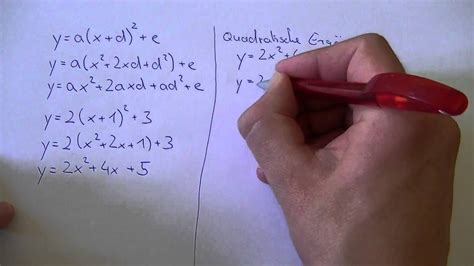 y=a(x+d)²+e
y=a(x²+2xd+d²)+e
y=ax²+2axd+ad²+e
y=2(x+1)²+3
y=2(x²+2x+1)+3
y=2x²+4x+5
Quadratische
y=2x²
y=2